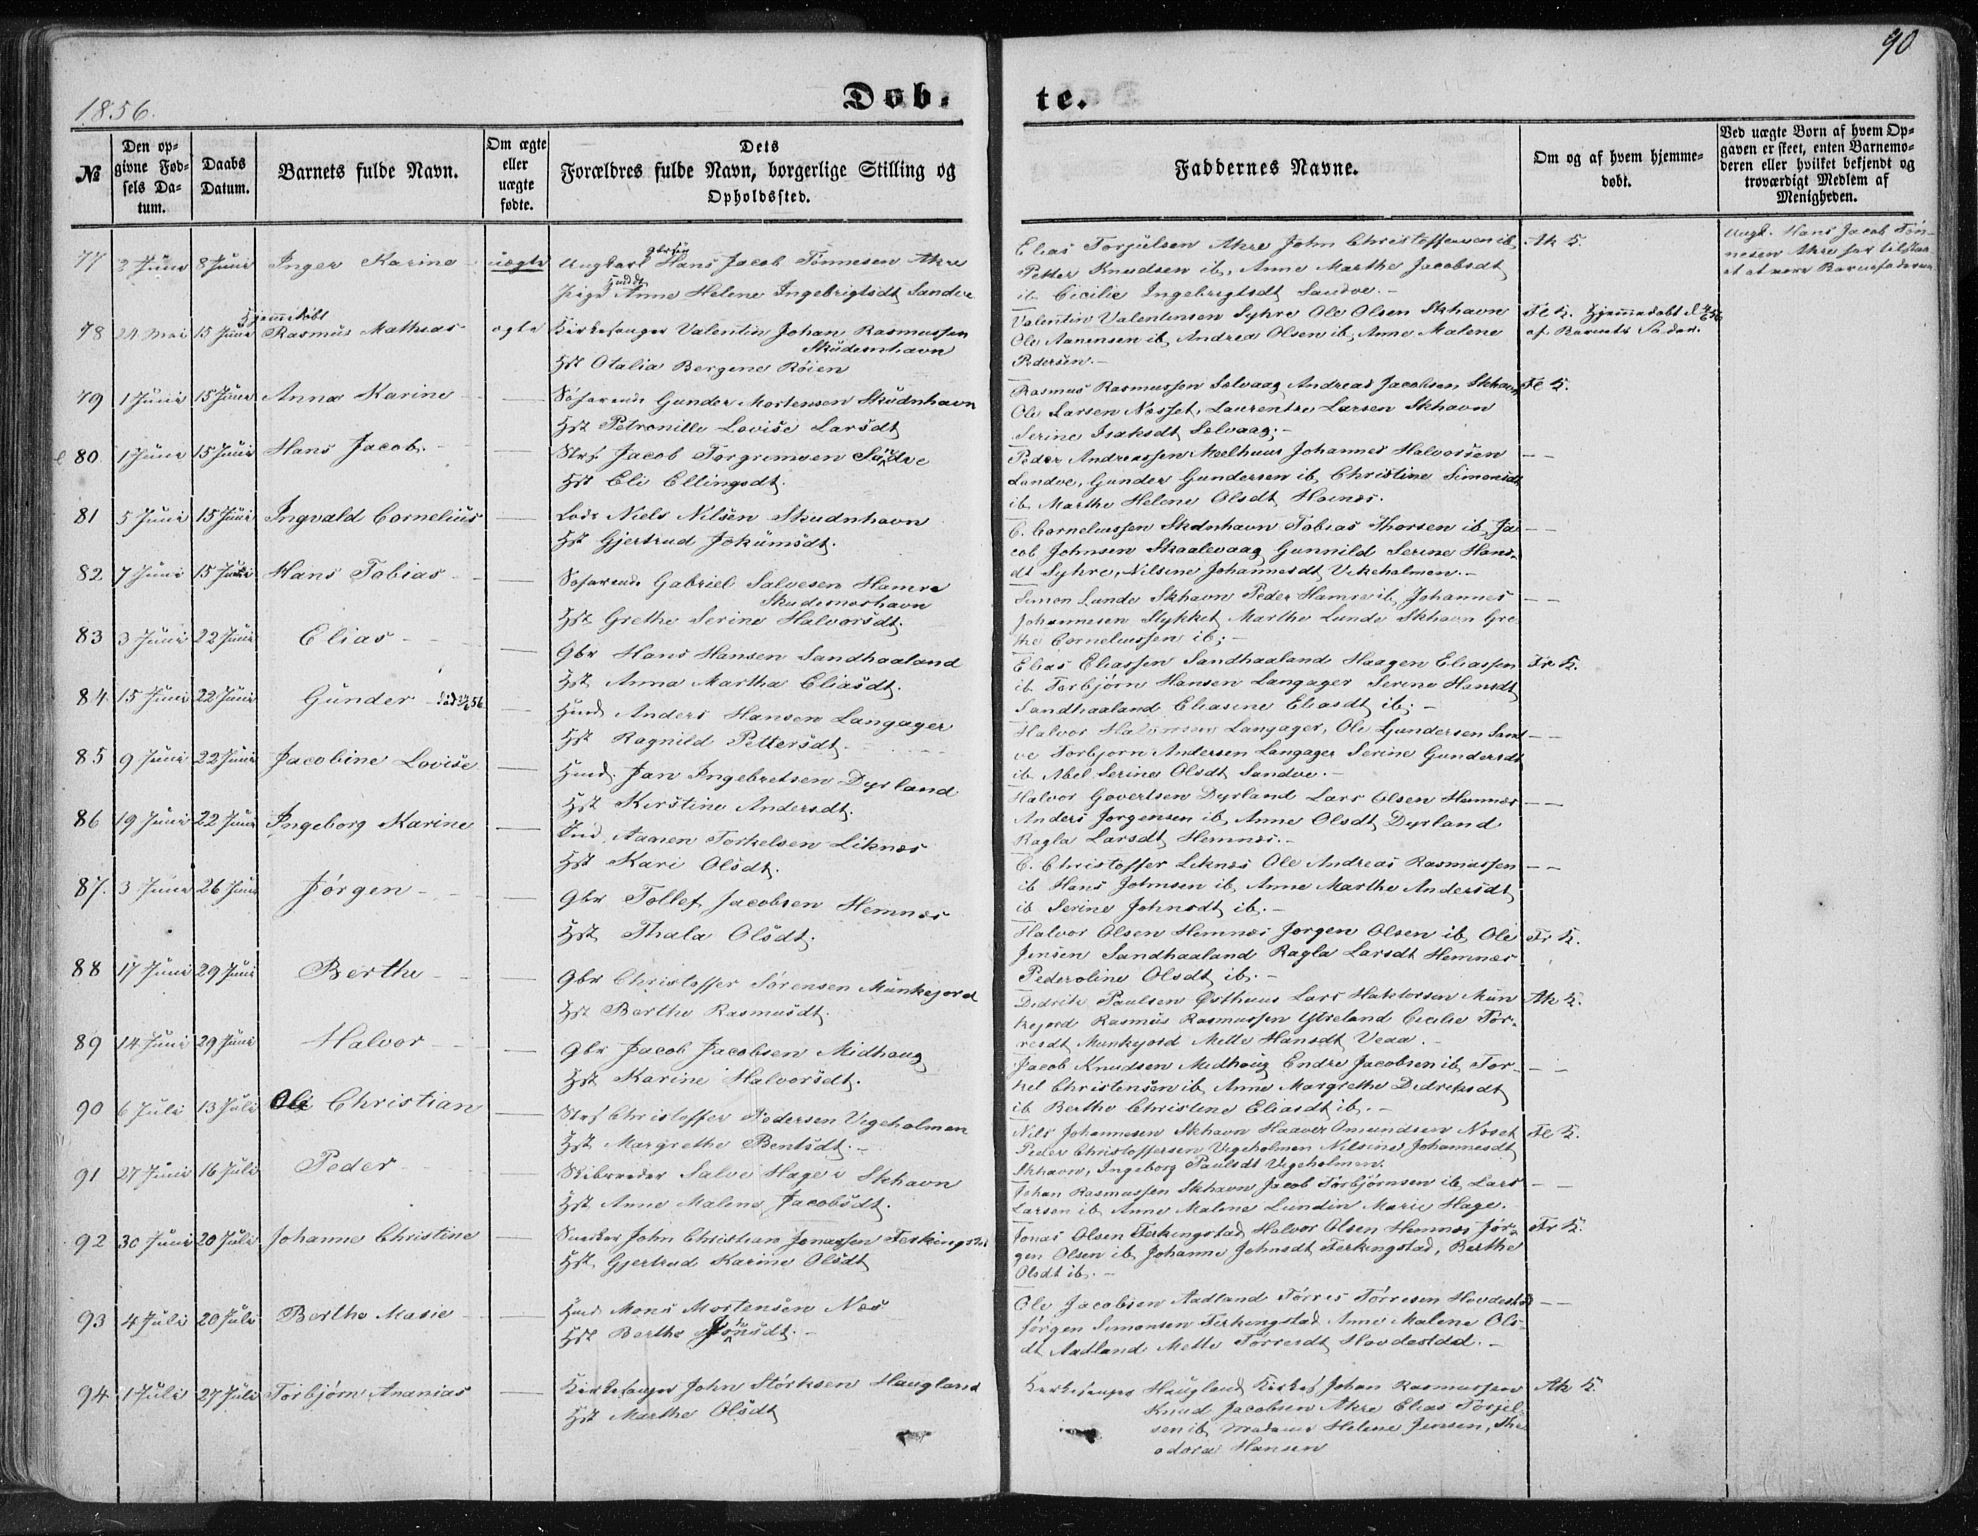 90
1856.
Døb-
te.
№
Den op-
givne Fød-
sels Da-
tum.
Daabs
Datum.
Barnets fulde Navn.
Om ægte
eller
uægte
fødte.
Dets
Forældres fulde Navn, borgerlige Stilling og
Opholdssted.
Faddernes Navne.
Om og af hvem hjemme-
døbt.
Ved uægte Børn af hvem Op-
gaven er skeet, enten Barnemo-
deren eller hvilket bekjendt og
troværdigt Medlem af
Menigheden.
77 2 Juni 8 Juni Inger Karine uægte
Ungkarl Hans Jacob Tønnesen Akre
pige Anne Helene Ingebrigtsdt Sandve
Elias Torjulsen Akre John Christoffersen ib,
Petter Knudsen ib, Anne Marthe Jacobsdt
ib Cicilie Ingebrigtsdt Sandve.-
Ak K.
Ungk. Hans Jacob Tøn-
nesen Akre har tilstaa-
et at være Barnefaderen
Hjemmedøbt
78 24 Mai 15 Juni Rasmus Mathias ægte
Kirkesanger Valentin Johan Rasmussen
Skudesnhavn
Hst Otalia Bergene Röien
Valentin Valentinsen Syhre Ole Olsen Skhavn
Ole Aanensen ib, Andrea Olsen ib, Anne Malene
Pedersen.-
Fe K. Hjemmedøbt
af Barnets Fader.
79 1 Juni 15 Juni Anna Karine
Søfarende Gunder Mortensen Skudnhavn
Hst Petronille Lovise Larsdt
Rasmus Rasmussen Solvaag, Andreas Jacobsen Skhavn
Ole Larsen Nesset, Laurentze Larsen Skhavn
Serine Isaksdt Solvaag.-
Fe K.
80. 1 Juni 15 Juni Hans Jacob.
Strf Jacob Torgrimsen Sandve
Hst Eli Ellingsdt.
Peder Andreassen Melhuus Johannes Halvorsen
Sandve, Gunder Gundersen ib, Christine Simonsdt
ib, Marthe Helene Olsdt Hoines.
81 5 Juni 15 Juni Ingvald Cornelius
Lods Niels Nilsen Skudnhavn
Hst Gjertrud Jokumsdt.
C. Corneliussen Skdnhavn Tobias Thorsen ib, Ja-
cob Johnsen Skaalevaag Gunnild Serine Hans-
dt Syhre, Nilsine Johannesdt Vikeholmen.-
82 7 Juni 15 Juni Hans Tobias
Søfarende Gabriel Salvesen Hamre
Skudesneshavn
Hst Grethe Serine Halvorsdt.
Simon Lunde Skhavn Peder Hamre ib, Johannes
Johannesen Stykket Marthe Lunde Skhavn Gre-
the Corneliussen ib;-
83 3 Juni 22 Juni Elias
Gbr Hans Hansen Sandhaaland
Hst Anna Martha Eliasdt.
Elias Eliassen Sandhaaland Haagen Eliassen
ib Torbjørn Hansen Langager Serine Hansdt
Sandhaaland Eliasine Eliasdt ib;-
Fr K.
84. 15 Juni 22 Juni Gunder
Huusd Anders Hansen Langager
Hst Ragnild Pettersdt.
Halvor Halvorsen Langager, Ole Gundersen Sand-
ve Torbjørn Andersen Langager Serine Gundersdt
ib, Abel Serine Olsdt Sandve.-
85 9 Juni 22 Juni Jacobine Lovise
Huusd. Jan Ingebretsen Dyrland
Hst Kirstine Andersdt.
Halvor Govertsen Dyrland Lars Olsen Hemnæs
Anders Jorgensen ib, Anne Olsdt Dyrland
Ragla Larsdt Hemnæs.-
86 19 Juni 22 Juni Ingeborg Karine
Ind. Aanen Torkelsen Liknæs
Hst Kari Olsdt.
C. Christoffer Liknæs Ole Andreas Rasmussen
ib Hans Johnsen ib, Anne Marthe Andersdt
ib Serine Johnsdt ib.-
87. 3 Juni 26 Juni Jørgen
Gbr Tollef Jacobsen Hemnæs
Hst Thala Olsdt.
Halvor Olsen Hemnæs Jorgen Olsen ib, Ole
Jensen Sandhaaland Ragla Larsdt Hemnæs
Pederoline Olsdt ib.-
Fr K.
88 17 Juni 29 Juni Berthe
Gbr Christoffer Sørensen Munkejord
Hst Berthe Rasmusdt.
Didrik Paulsen Østhuus Lars Haktorsen Mun-
kejord Rasmus Rasmussen Ytreland Cicilie Tor-
resdt Munkejord Mette Hansdt Veaa.-
Ak K.
89 14 Juni 29 Juni Halvor
Gbr Jacob Jacobsen Midhaug
Hst Karine Halvorsdt.
Jacob Knudsen Midhoug Endre Jacobsen ib, Tor-
kel Christensen ib, Anne Margrethe Didriksdt
ib Berthe Christine Eliasdt ib.-
90 6 Juli 13 Juli Ole Christian
Strf Christoffer Pedersen Vigeholmen
Hst Margrethe Bentsdt.-
Nils Johannesen Skhavn Haaver Omundsen Noset
Peder Christoffersen Vigeholmen Nilsine Johannesdt
Skhavn, Ingeborg Paulsdt Vigeholmen.
Fe K.
91 27 Juni 16 Juli Peder
Skibsreder Salve Hage i Skhavn
Hst Anne Malene Jacobsdt.
Johan Rasmussen Skhavn Jacob Torbjørnsen ib, Lars
Larsen ib, Anne Malene Lundin Marie Hage.
92 30 Juni 20 Juli Johanne Christine
Snedker John Christian Jonassen Ferkingstad
Hst Gjertrud Karine Olsdt
Jonas Olsen Ferkingstad Halvor Olsen Hemnæs Jør-
gen Olsen ib, Johanne Johnsdt Ferkingstad, Berthe
Olsdt ib.-
Fr K.
93 4 Juli 20 Juli Berthe Marie
Huusd Mons Mortensen Næs
Hst Berthe Jonsdt.-
Ole Jacobsen Aadland Tørris Tørresen Hovdestad
Jørgen Simonsen Ferkingstad Anne Malene Ols-
dt Aadland Mette Tørresdt Hovdestad.-
94 1 Juli 27 Juli Torbjørn Ananias
Kirkesanger John Størksen Haugland
Hst Marthe Olsdt
Kirkesanger Haugland Kirkes Johan Rasmussen
Knud Jacobsen Akre Elias Torjel-
sen ib, Madame Helene Jensen, The-
odora Hansen
Ak K.